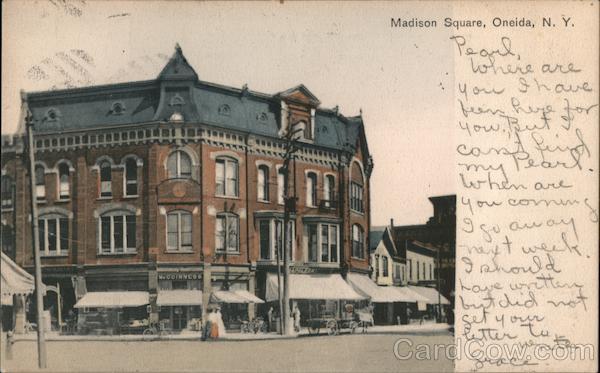 Madison Square, Oneida, N. Y.
Pearl,
Where are
you I have
been here for
you, but I
can't find
my Pearl.
When are
you coming
I go away
next week.
I should
have written
but did not
get your
letter to
Grace.
McGUINNESS
CardCow.com